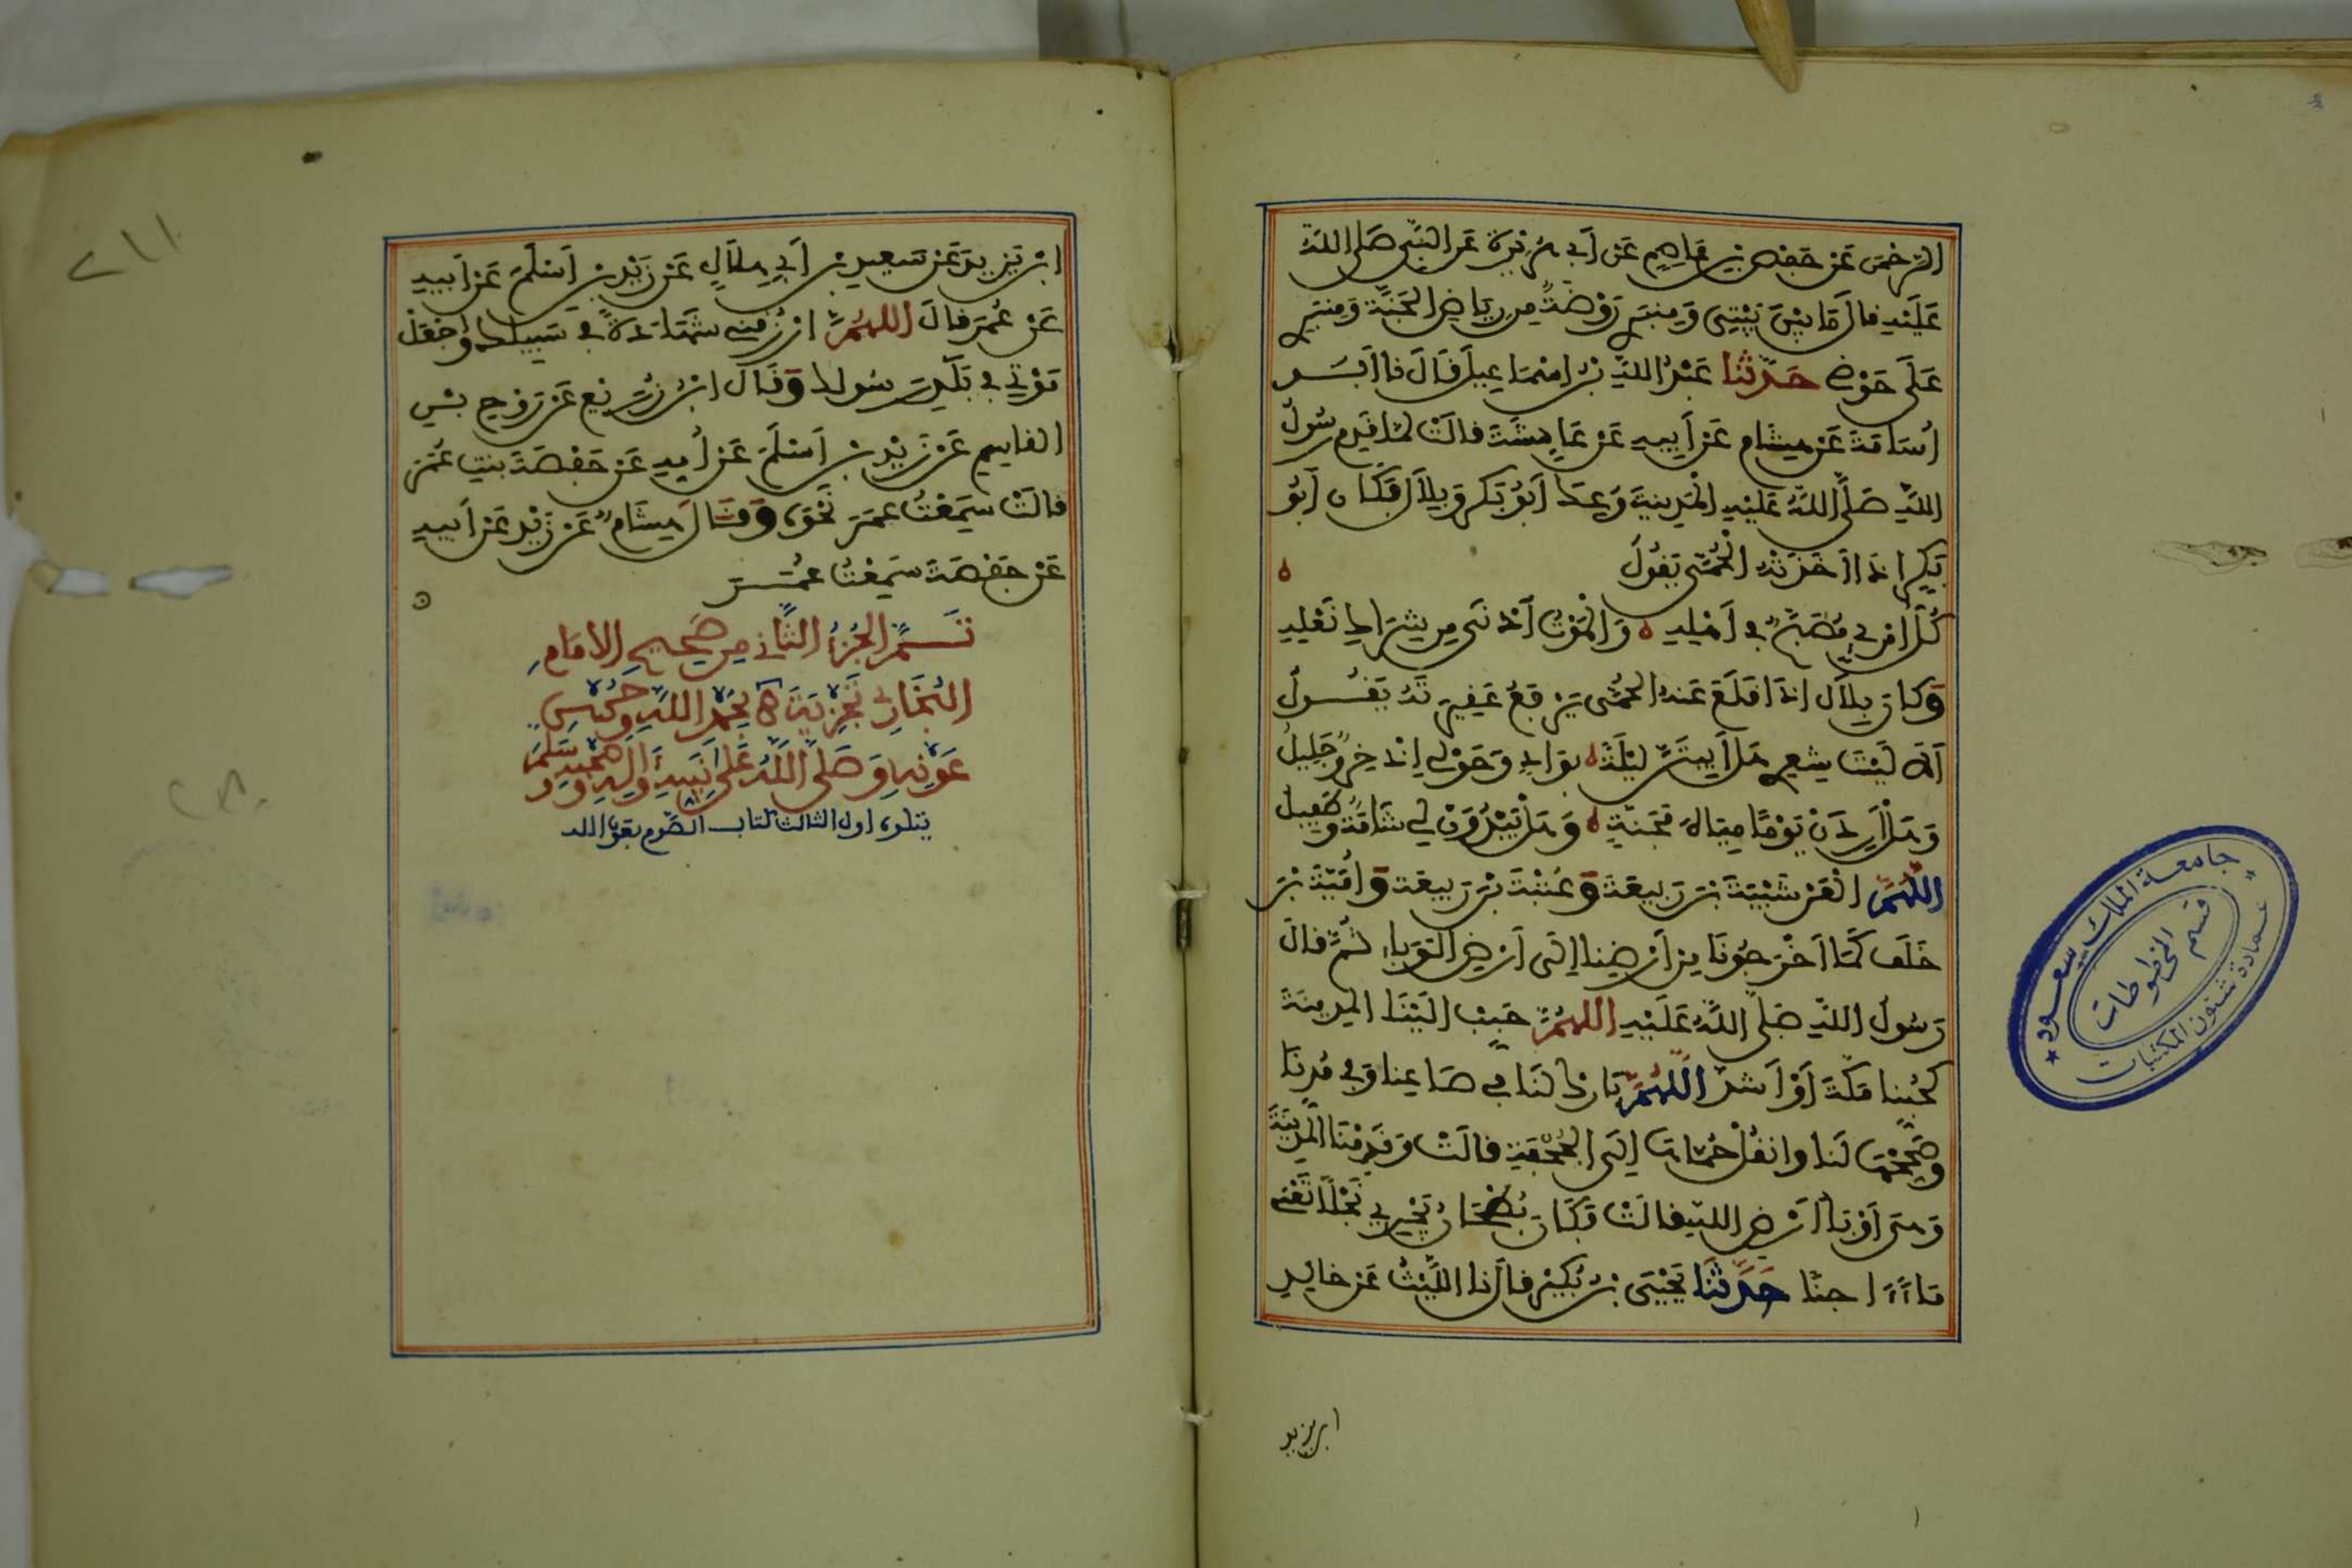 الرحمن عن حفص بن عاصم عن أبي هريرة عن النبي صلى الله
عليه قال ما بين بيتي ومنبري روضة من رياض الجنة ومنبري
على حوضي حدثنا عبد الله بن اسماعيل قال نا أبو
أسامة عن هشام عن أبيه عن عائشة قالت لما قدم رسول
الله صلى الله عليه المدينة وعك أبو بكر وبلال فكان أبو
بكر إذا أخذته الحمى يقول
كل امرئ مصبح في أهله والموت أدنى من شراك نعله
وكان بلال إذا اقلع عنه الحمى يرفع عقيرته يقول
ألا ليت شعري هل أبيتن ليلة بواد وحولي إذخر وجليل
وهل أردن يوما مياه مجنة وهل تبدون لي شامة وطفيل
اللهم العن شيبة بن ربيعة وعتبة بن ربيعة وأمية بن
خلف كما أخرجونا من أرضنا إلى أرض الوباء ثم قال
رسول الله صلى الله عليه اللهم حبب الينا المدينة
كحبنا مكة أو أشد اللهم بارك لنا في صاعنا وفي مدنا
وصححها لنا وانقل حماها إلى الجحفة قالت وقدمنا المدينة
وهي أوبأ أرض الله قالت فكان بطحان يجري نجلا تعني
ماء اجنا حدثنا يحيى بن بكير قال نا الليث عن خالد
ابن يزيد
ابن يزيد عن سعيد بن أبي هلال عن زيد بن أسلم عن أبيه
عن عمر قال اللهم ارزقني شهادة في سبيلك واجعل
موتي في بلد رسولك وقال ابن زريع عن روح بن
القاسم عن زيد بن أسلم عن أمه عن حفصة بنت عمر
قالت سمعت عمر نحوه وقال هشام عن زيد عن أبيه
عن حفصة سمعت عمر
تم الجزء الثاني من صحيح الامام
البخاري تجزية بحمد الله وحسن
عونه وصلى الله على نبيه وآله وصحبه وسلم
يتلوه أول الثالث كتاب الصوم بعون الله
٢١١
جامعة الملك سعود
قسم المخطوطات
عمادة شئون المكتبات